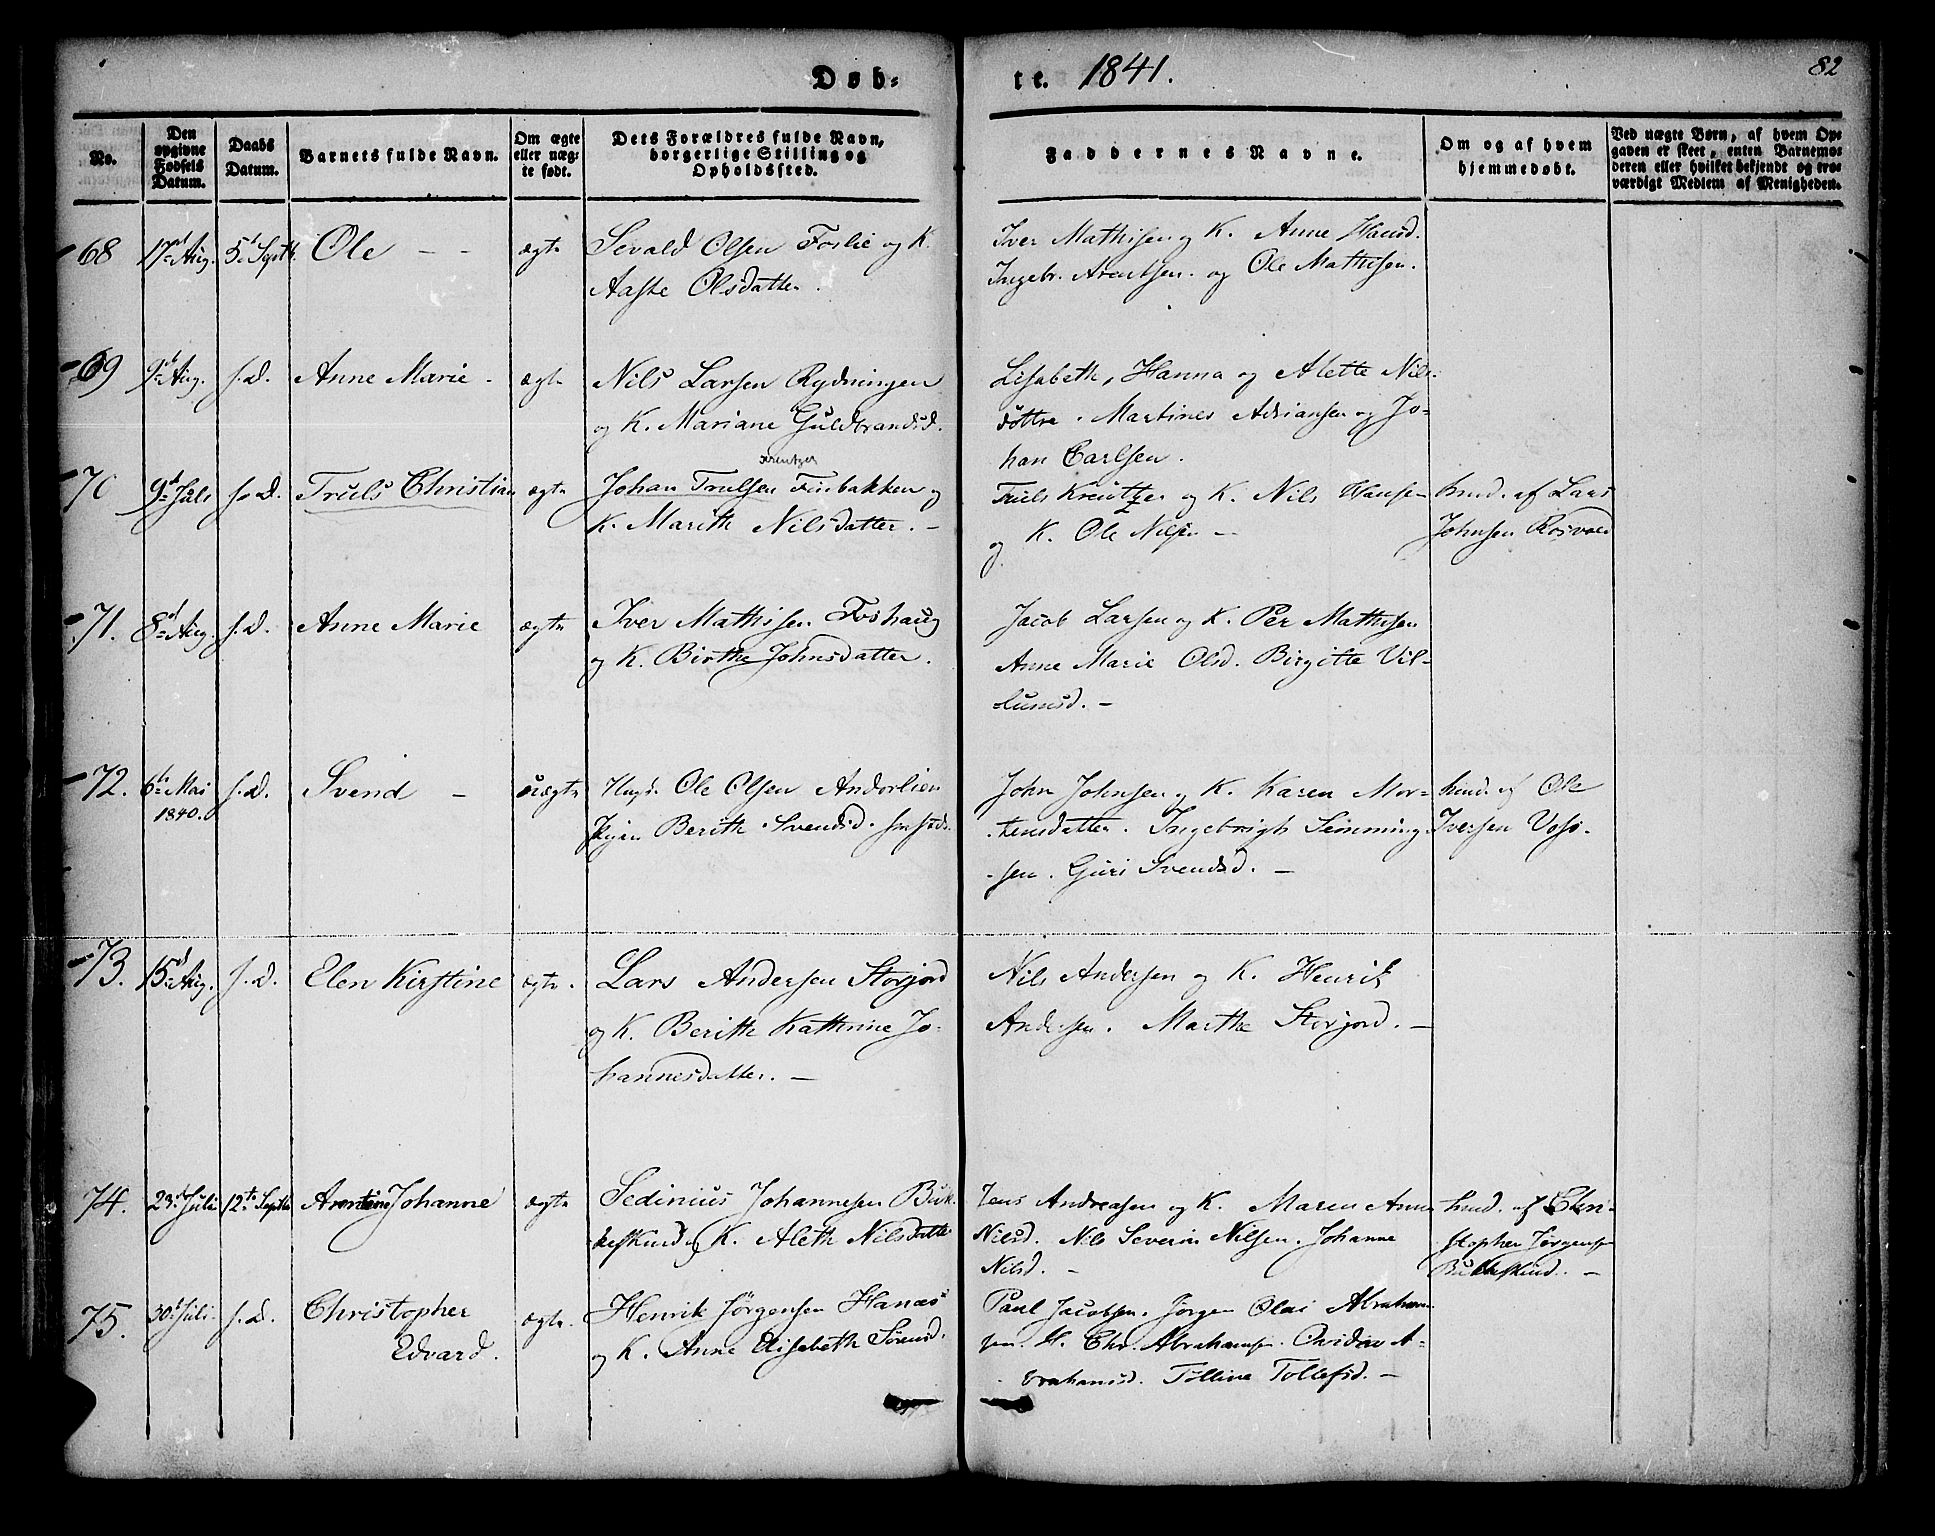 Døb=
te. 1841.
82
No.
Den opgivne Fødsels Datum.
Daabs Datum.
Barnets fulde Navn.
Om ægte eller uægte født.
Dets Forældres fulde Navn, borgerlige Stilling og Opholdssted.
Faddernes Navne.
Om og af hvem hjemmedøbt.
Ved uægte Børn, af hvem Opgaven er skeet, enten Barnemoderen eller hvilket bekjendt og troværdigt Medlem af Menigheden.
68 17de Aug. 5t Septb. Ole - - ægte Sevald Olsen Foslie og K.
Aaste Olsdatter.
Iver Mathisen og K. Anne Hansd.
Ingebr. Arentsen. og Ole Mathisen.
69 9de Aug. s.D. Anne Marie. ægte Nils Larsen Rydningen
og K. Mariane Guldbrandsd.
Lisabeth, Hanna og Alette Nils-
døttre. Martines Adriansen og Jo-
han Carlsen.
70 9d Juli s.D. Truls Christian ægte Johan Trulsen Kreutzer Finbakken og
K. Marith Nilsdatter. -
Truls Kreutzer og K. Nils Hansen
og K. Ole Nilsen -
hmd. af Lars
Johnsen Rosvold
71. 8d Aug. s.D. Anne Marie ægte Iver Mathisen Foshaug
og K. Birthe Johnsdatter.
Jacob Larsen og K. Per Mathisen
Anne Marie Olsd. Birgitte Vil-
lumsd. -
72. 6te Mai 1840. s.D. Svend - uægte Ungk. Ole Olsen Andorlien
Pigen Berith Svendsd.
John Johnsen og K. Karen Mor-
tensdatter. Ingebrigh Simming-
sen. Guri Svendsd. -
hmd. af Ole
Iversen
73. 15d Aug. s.D. Elen Kirstine ægte. Lars Andersen Storjord
og K. Berith Kathrine Jo-
hannesdatter. -
Nils Andersen og K. Henrik
Andersen. Marthe Storjord. -
74. 23d Juli 12te Septbr Arntine Johanne ægte Sedinius Johannesen Buk-
keskind og K. Aleth Nilsdatter
Jens Andreasen og K. Maren Anne
Nilsd. Nils Severin Nilsen. Johanne
Nilsd. -
hmd. af Chri-
stopher Jørgensen
Bukkeskind. -
75. 30d Juli. s.D. Christopher
Edvard. ægte. Henrik Jørgensen Hanæs
og K. Anne Elisabeth Sørensd.
Paul Jacobsen. Jørgen Olai Abraham-
sen. H. Chr. Abrahamsen. A-
brahamsd. Tolline Tollefsd. -